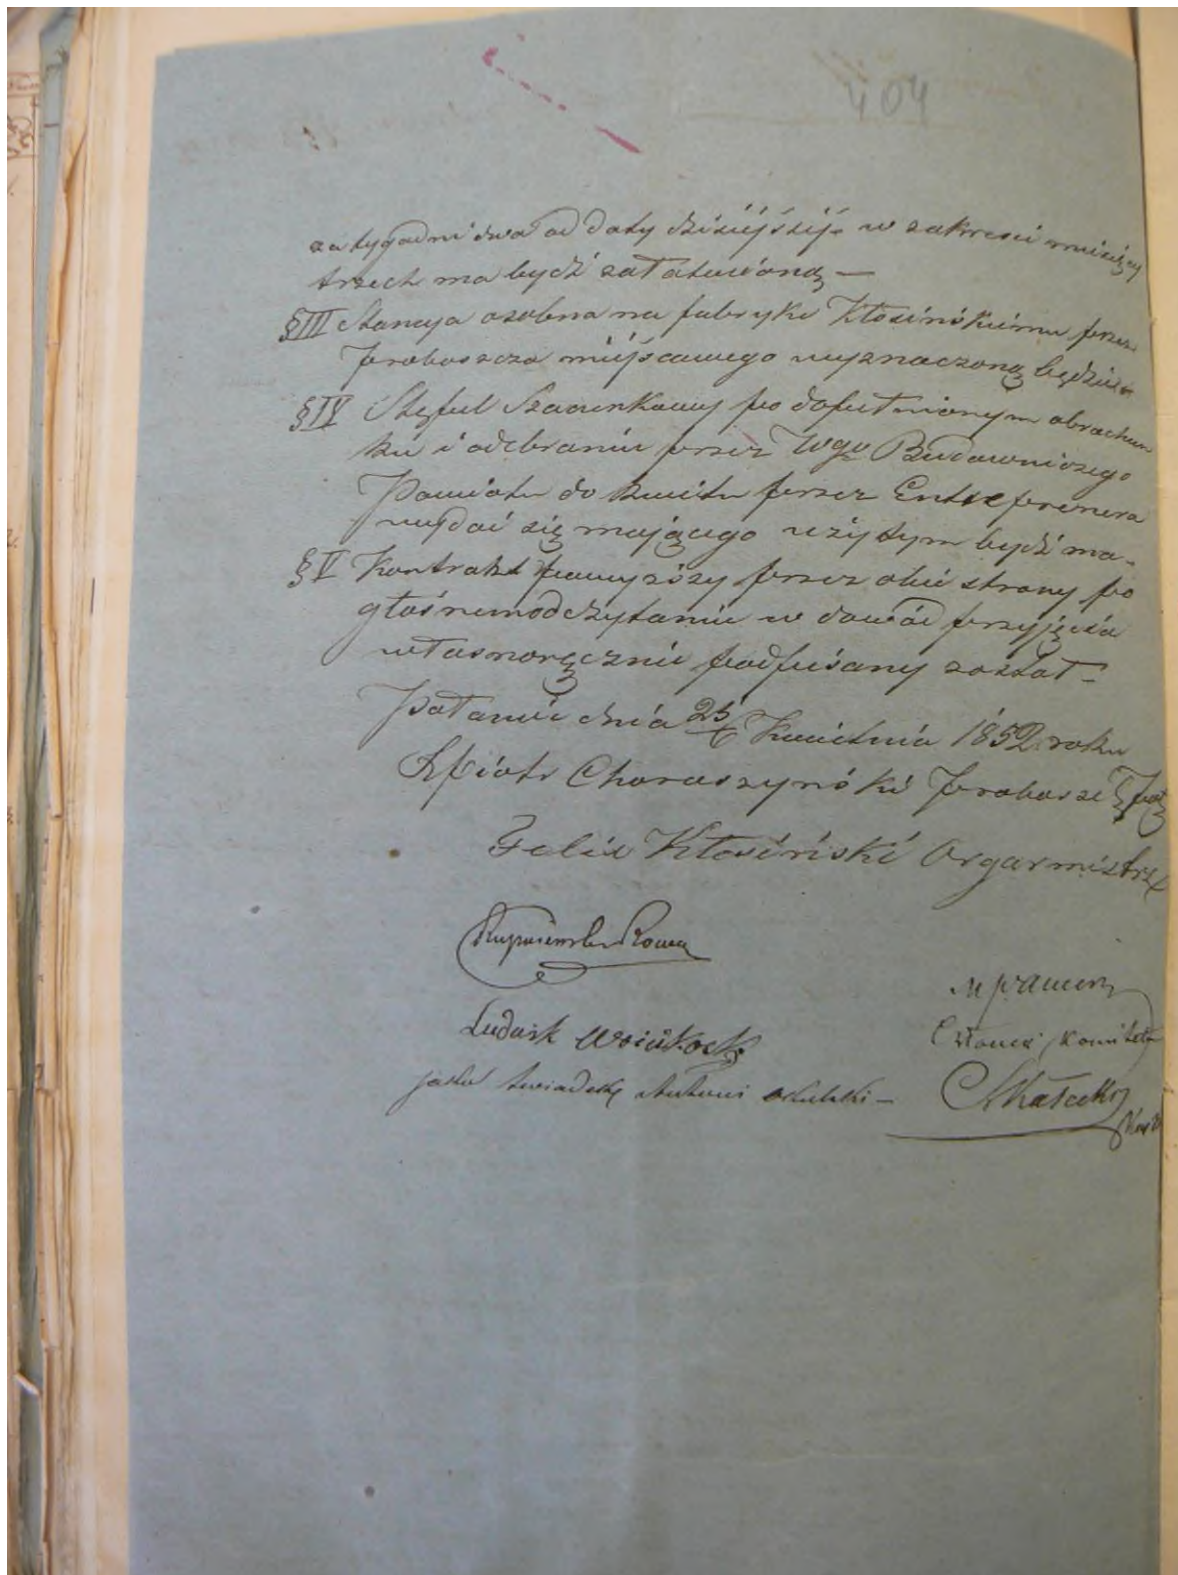 404
za tygodni dwa od daty dzisiejszéj w zakresie miesięcy
trzech ma bydź załatwioną —
§III Stancya osobna na fabrykę Kłosińskiemu przez
Proboszcza miejscowego wyznaczoną będzie
§IV Stępel Szacunkowy po dopełnionym obrachun
ku i odebraniu przez Wgo Budowniczego
Powiatu do kwitu przez Entreprenera
wydać się mającego użytym bydź ma.
§V Kontrakt powyższy przez obie strony po
głośnem odczytaniu w dowód przyjęcia
własnoręcznie podpisany został.
dnia 25 Kwietnia 1852 roku
X Piotr Choroszyński Proboszcz
Felix Kłosiński Orgarmistrz
Ludwik
Członek Komitetu
jako świadek Antoni